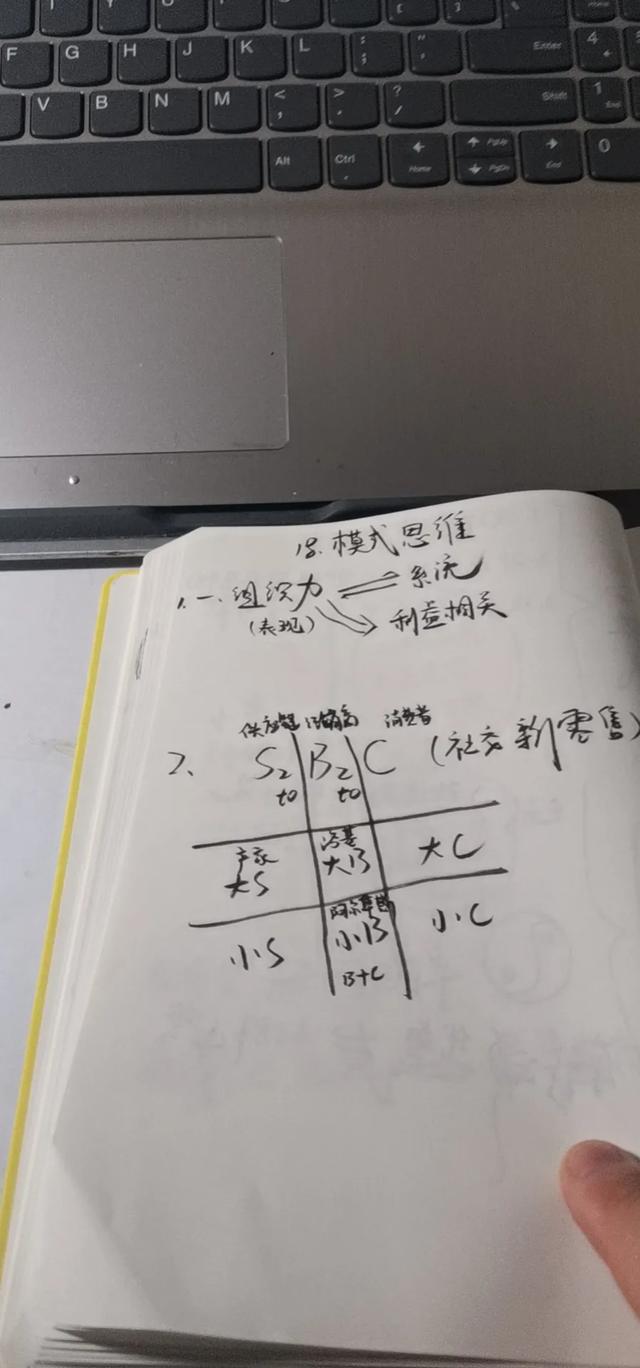 F G H J K L : ; " ' Enter 4
V B N M < , > . ? / Shift 1 End
Alt Ctrl Home PgUp PgDn End 0
18. 模式思维
1. 一、组织力 系统
(表现) 利益相关
供应链 消费者
2、 S2 B2 C (社交新零售)
to to
厂家
大S 大B 大C
小S 小B 小C
B+C